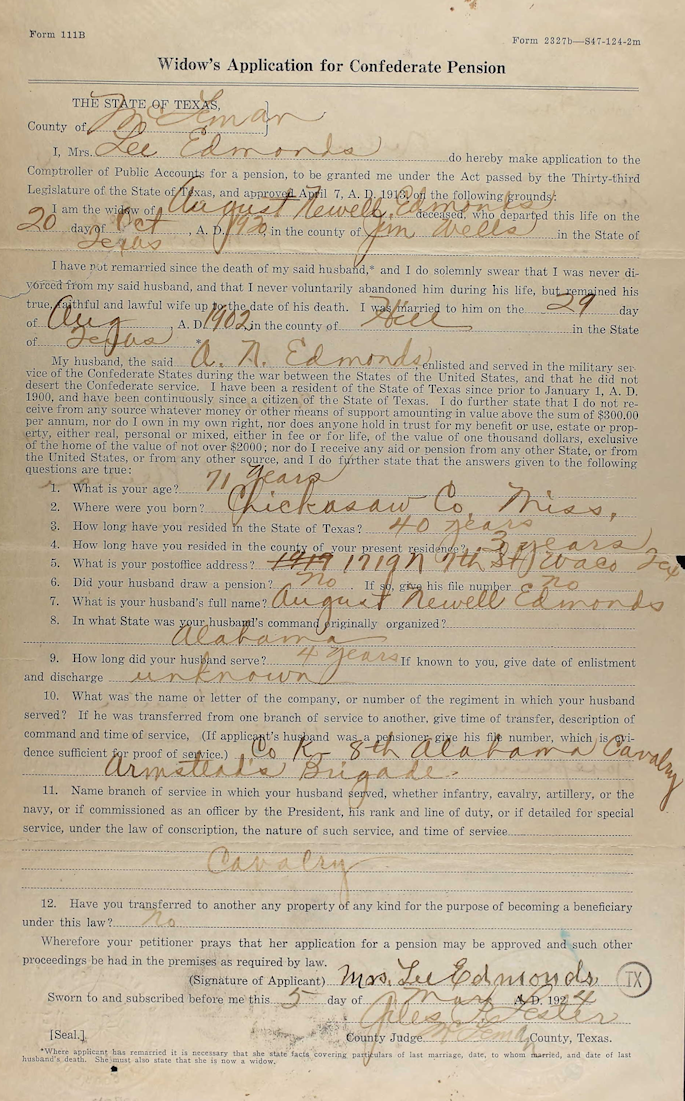 Form 111B
Form 2327b—S47-124-2m
Widow's Application for Confederate Pension
THE STATE OF TEXAS,
County of
I, Mrs. Lee Edmonds do hereby make application to the
Comptroller of Public Accounts for a pension, to be granted me under the Act passed by the Thirty-third
Legislature of the State of Texas, and approved April 7, A. D. 1913, on the following grounds:
I am the widow of August Newell Edmonds, deceased, who departed this life on the
20 day of Oct, A. D. 1920 in the county of Jim Wells in the State of
Texas
I have not remarried since the death of my said husband,* and I do solemnly swear that I was never di-
vorced from my said husband, and that I never voluntarily abandoned him during his life, but remained his
true, faithful and lawful wife up to the date of his death. I was married to him on the 29 day
of Aug, A. D. 1902 in the county of Hill in the State
of Texas
My husband, the said A. N. Edmonds, enlisted and served in the military ser-
vice of the Confederate States during the war between the States of the United States, and that he did not
desert the Confederate service. I have been a resident of the State of Texas since prior to January 1, A. D.
1900, and have been continuously since a citizen of the State of Texas. I do further state that I do not re-
ceive from any source whatever money or other means of support amounting in value above the sum of $300.00
per annum, nor do I own in my own right, nor does anyone hold in trust for my benefit or use, estate or prop-
erty, either real, personal or mixed, either in fee or for life, of the value of one thousand dollars, exclusive
of the home of the value of not over $2000; nor do I receive any aid or pension from any other State, or from
the United States, or from any other source, and I do further state that the answers given to the following
questions are true:
1. What is your age? 71 years
2. Where were you born? Chickasaw Co, Miss,
3. How long have you resided in the State of Texas? 40 years
4. How long have you resided in the county of your present residence? 3 years
5. What is your postoffice address? 1919 1719 N 7th St, Waco Tex
6. Did your husband draw a pension? no. If so, give his file number no
7. What is your husband's full name? August Newell Edmonds
8. In what State was your husband's command originally organized?
Alabama
9. How long did your husband serve? 4 years If known to you, give date of enlistment
and discharge unknown
10. What was the name or letter of the company, or number of the regiment in which your husband
served? If he was transferred from one branch of service to another, give time of transfer, description of
command and time of service, (If applicant's husband was a pensioner, give his file number, which is evi-
dence sufficient for proof of service.) Co K - 8th Alabama Cavalry
Armstead's Brigade.
11. Name branch of service in which your husband served, whether infantry, cavalry, artillery, or the
navy, or if commissioned as an officer by the President, his rank and line of duty, or if detailed for special
service, under the law of conscription, the nature of such service, and time of service
Cavalry
12. Have you transferred to another any property of any kind for the purpose of becoming a beneficiary
under this law? no
Wherefore your petitioner prays that her application for a pension may be approved and such other
proceedings be had in the premises as required by law.
(Signature of Applicant) Mrs. Lee Edmonds
TX
Sworn to and subscribed before me this 5 day of A. D. 1924
Giles
County Judge County, Texas.
[Seal.]
*Where applicant has remarried it is necessary that she state facts covering particulars of last marriage, date, to whom married, and date of last
husband's death. She must also state that she is now a widow.